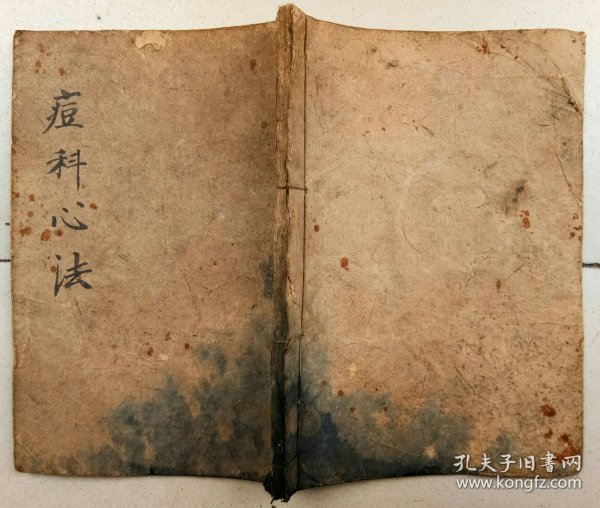 痘科心法
孔夫子旧書网
www.kongfz.com